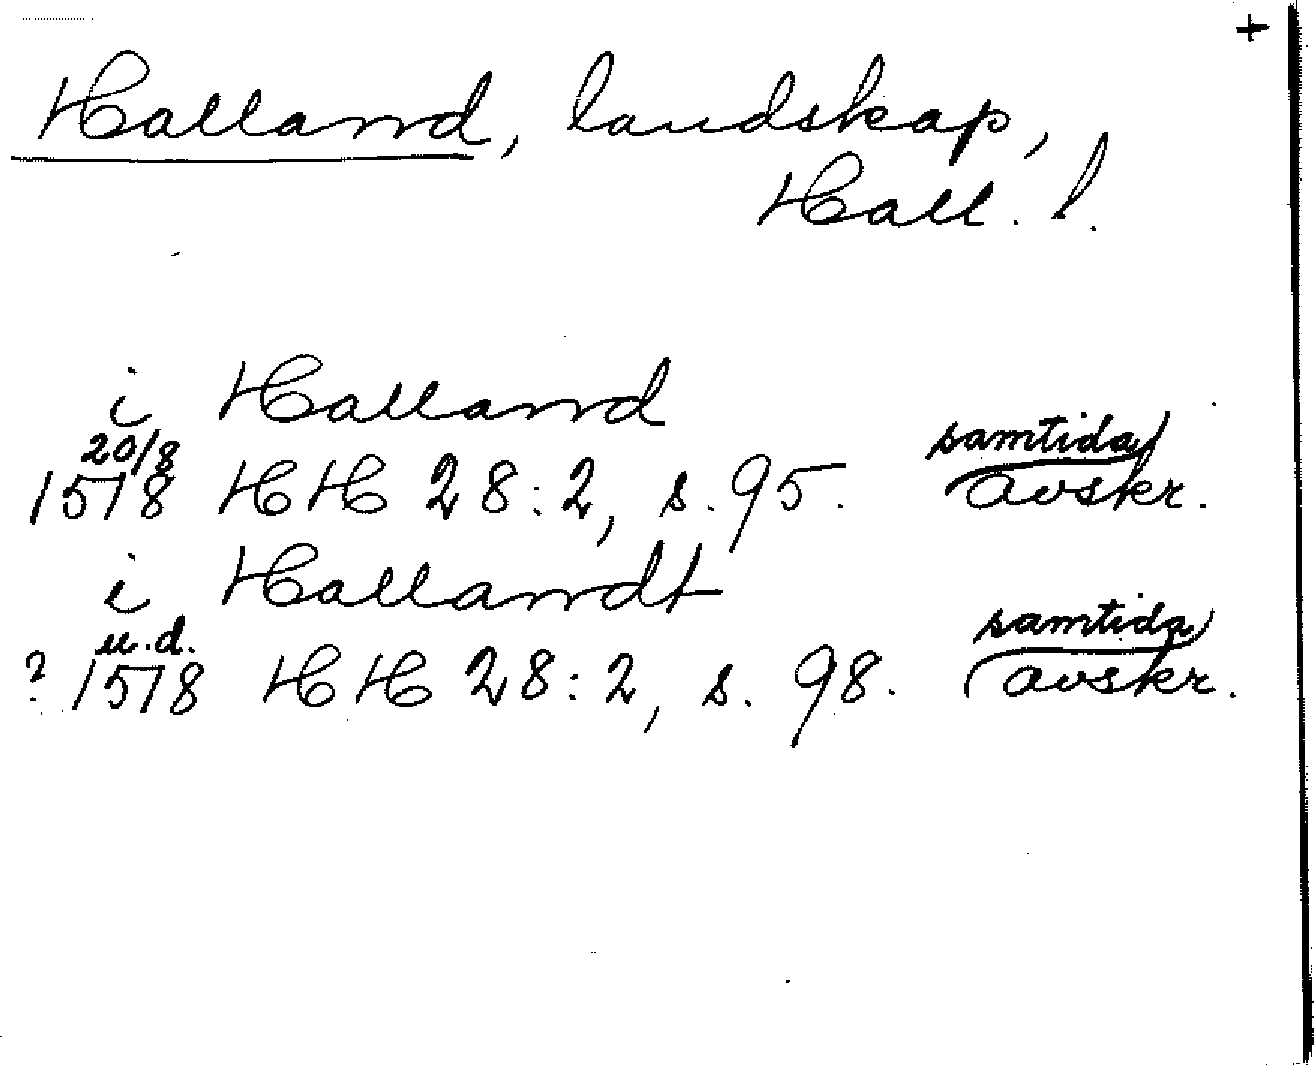 +
Halland, landskap,
Hall. l.
i Halland
20/8 samtida
1578 HH 28:2, s. 95. avskr.
i Hallandt
u.d. samtida
? 1578 HH 28:2, s. 98. avskr.